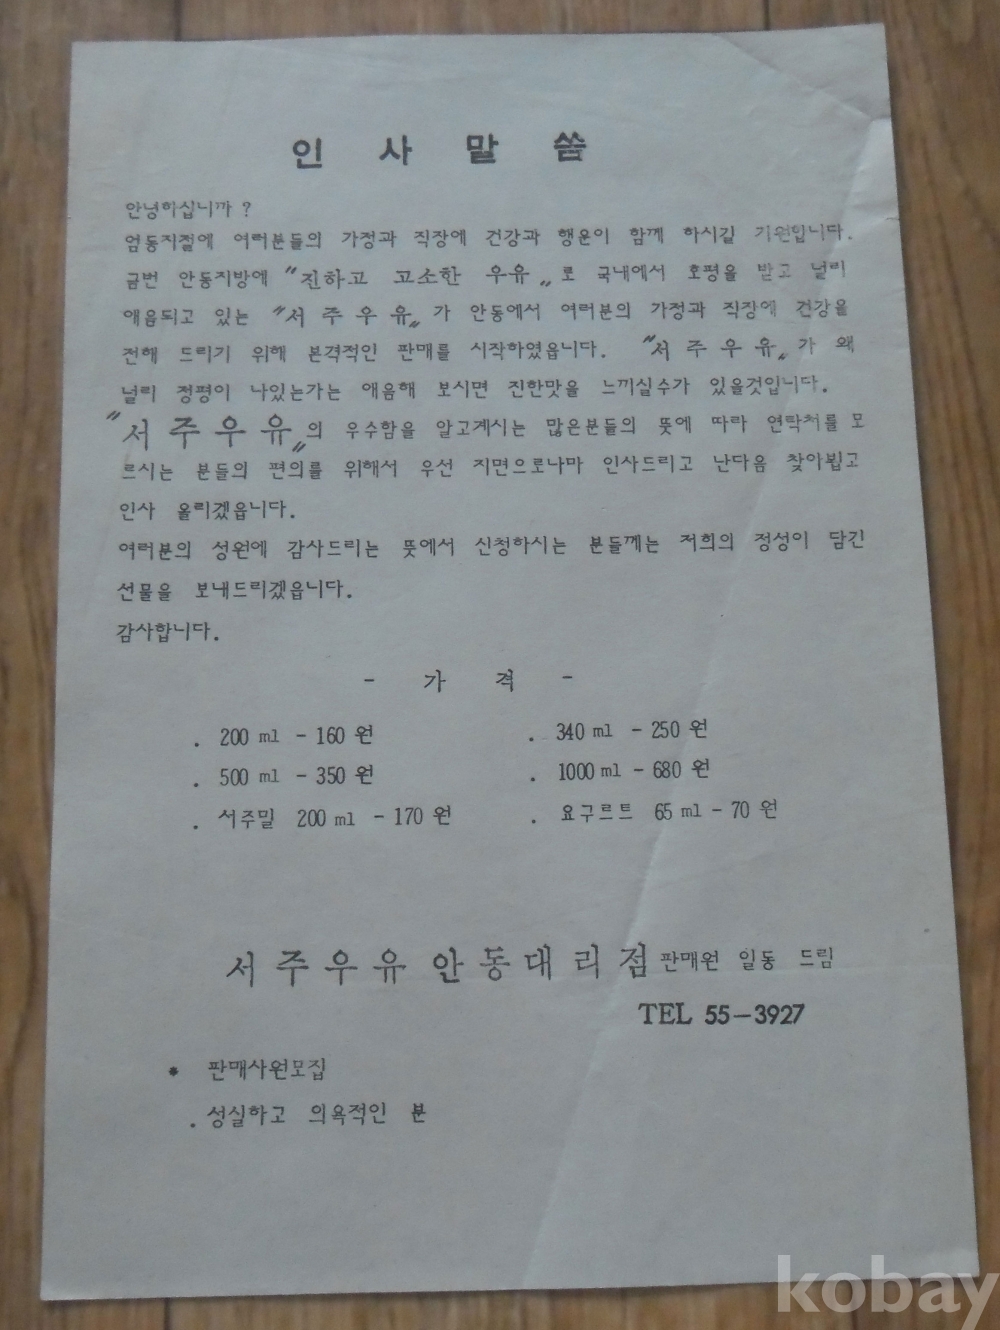 인 사 말 씀
안녕하십니까 ?
엄동지절에 여러분들의 가정과 직장에 건강과 행운이 함께 하시길 기원합니다.
금번 안동지방에 〃진하고 고소한 우유〃로 국내에서 호평을 받고 널리
애음되고 있는 〃서 주 우 유〃가 안동에서 여러분의 가정과 직장에 건강을
전해 드리기 위해 본격적인 판매를 시작하였읍니다. 〃서 주 우 유〃가 왜
널리 정평이 나있는가는 애음해 보시면 진한맛을 느끼실수가 있을것입니다.
〃서 주 우 유〃의 우수함을 알고계시는 많은분들의 뜻에 따라 연락처를 모
르시는 분들의 편의를 위해서 우선 지면으로나마 인사드리고 난다음 찾아뵙고
인사 올리겠읍니다.
여러분의 성원에 감사드리는 뜻에서 신청하시는 분들께는 저희의 정성이 담긴
선물을 보내드리겠읍니다.
감사합니다.
- 가 격 -
. 200 ml - 160 원 . 340 ml - 250 원
. 500 ml - 350 원 . 1000 ml - 680 원
. 서주밀 200 ml - 170 원 . 요구르트 65 ml - 70 원
서 주 우 유 안 동 대 리 점 판매원 일동 드림
TEL 55-3927
* 판매사원모집
. 성실하고 의욕적인 분
kobay